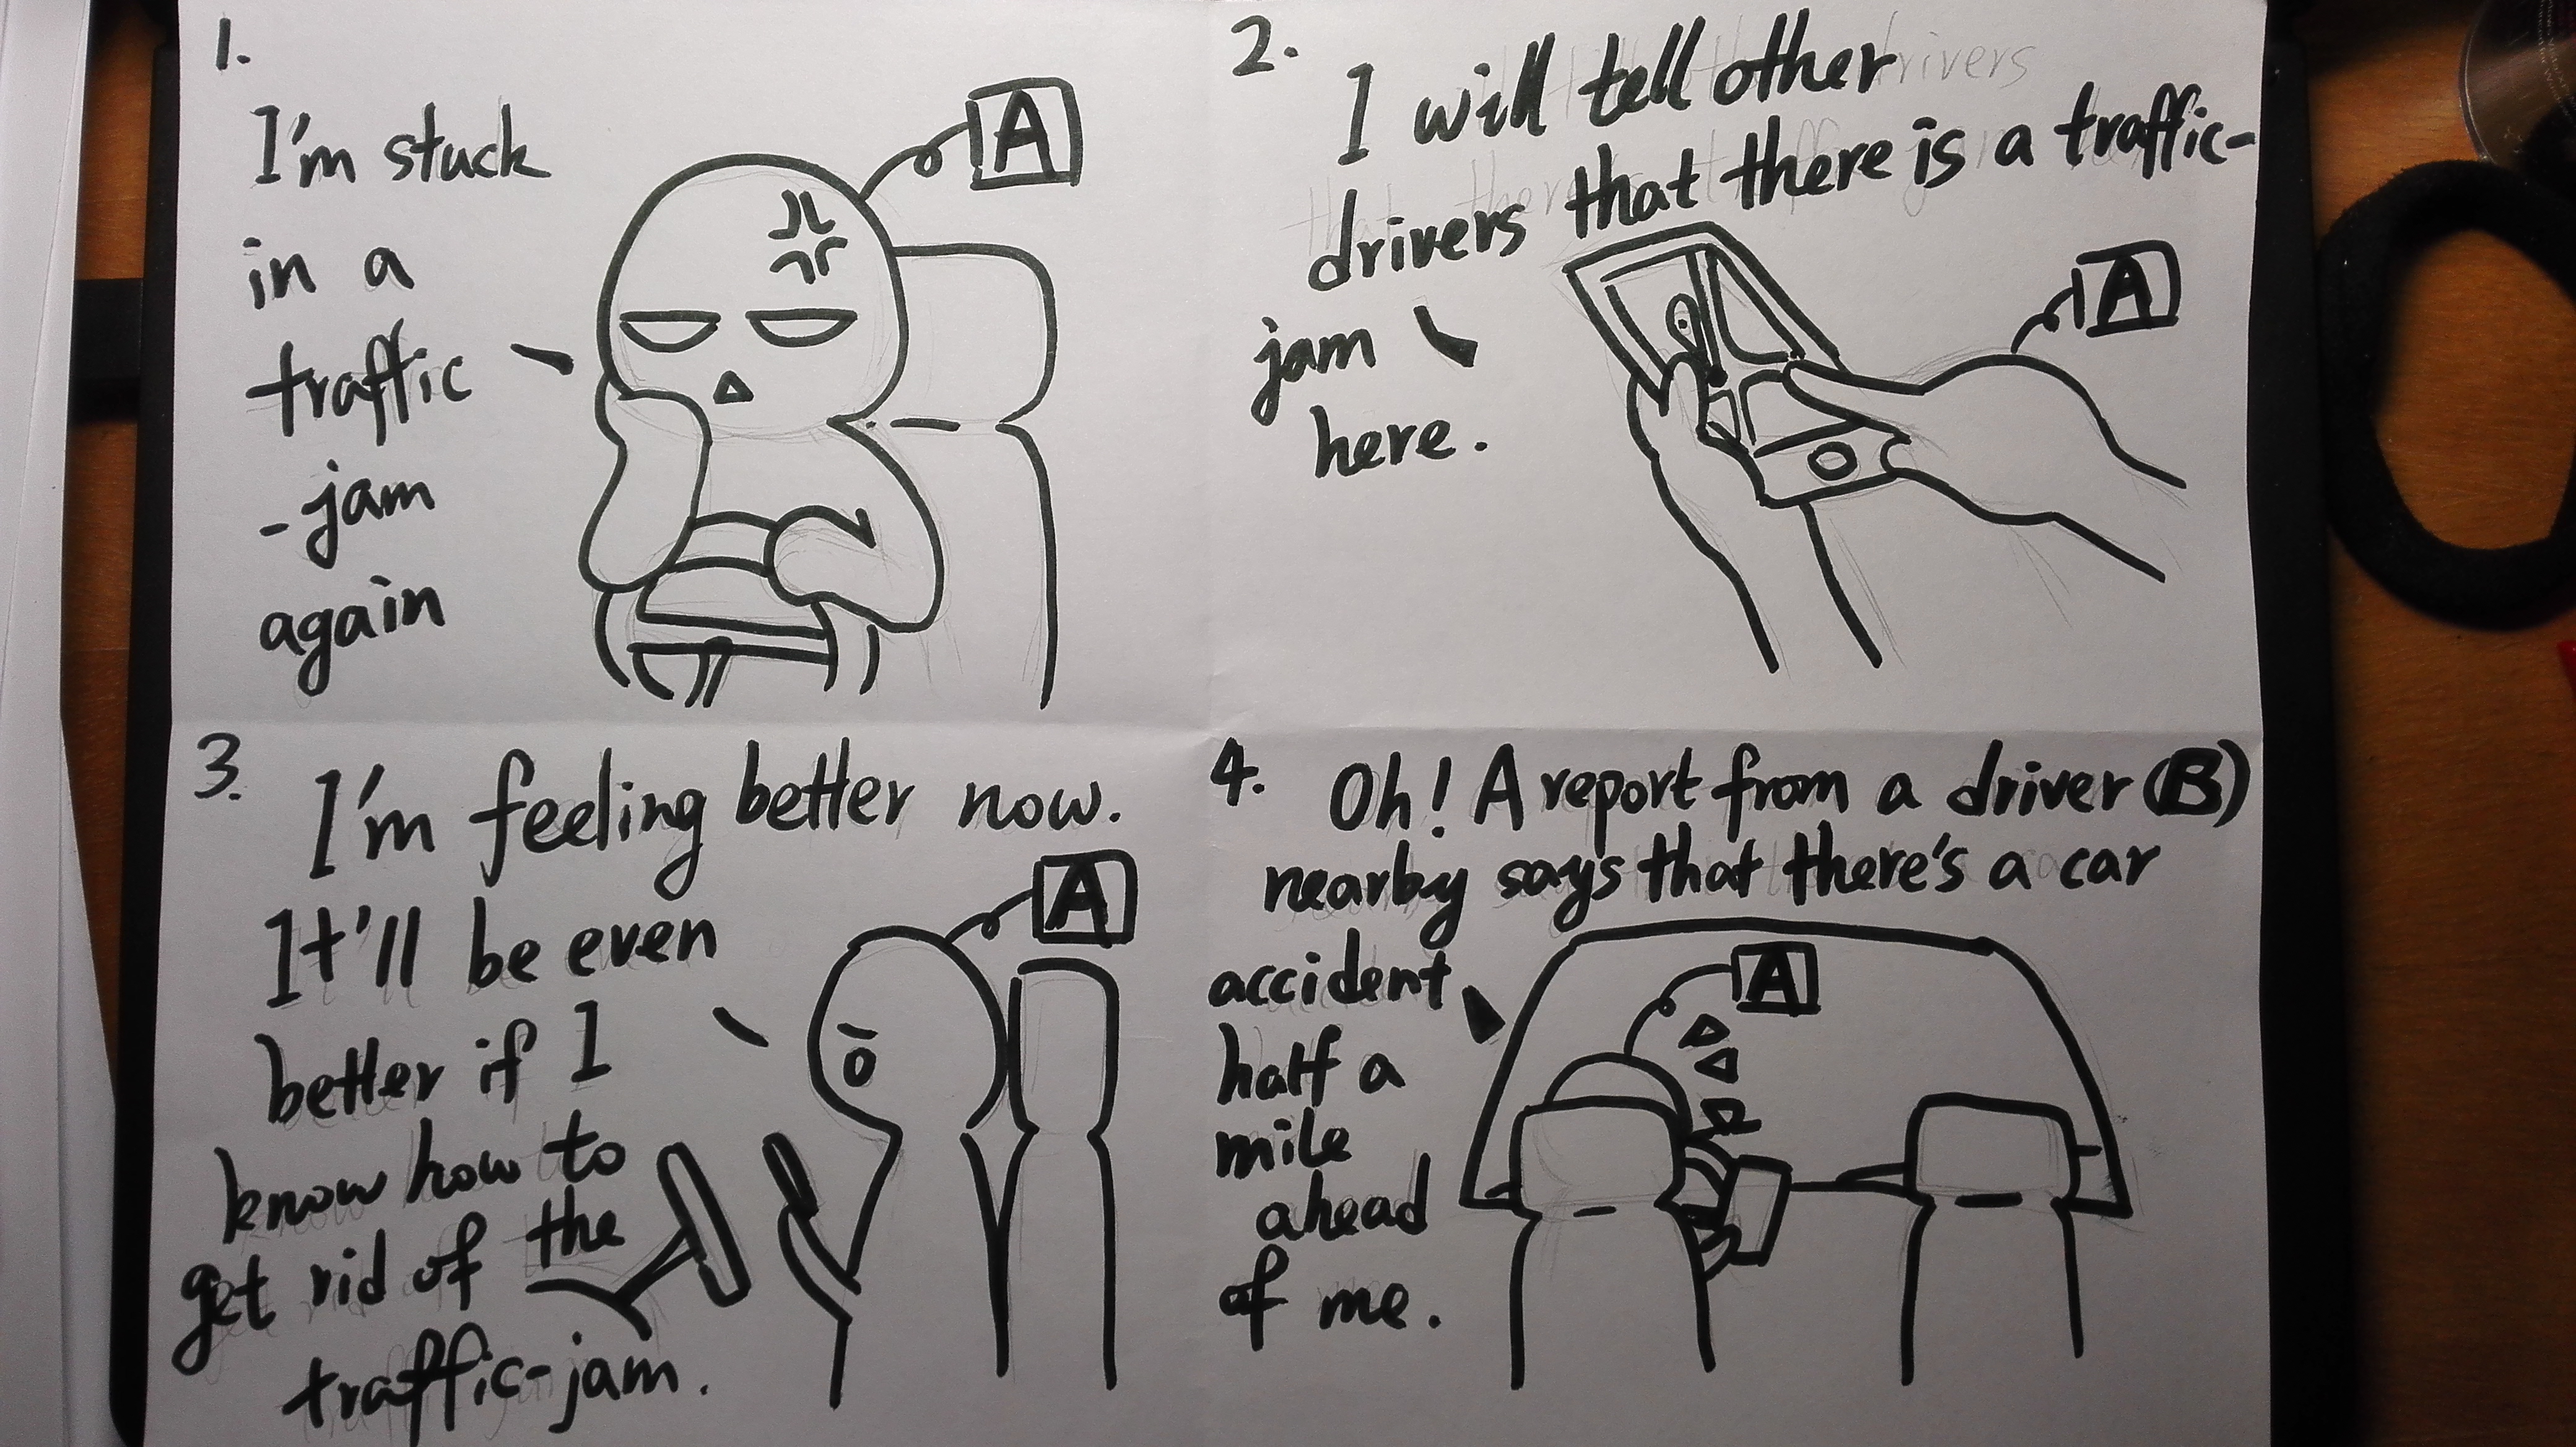 1.
I'm stuck
in a
traffic
-jam
again
A
2.
I will tell other
drivers that there is a traffic-
jam
here.
A
3.
I'm feeling better now.
It'll be even
better if I
know how to
get rid of the
traffic-jam.
A
4.
Oh! A report from a driver (B)
nearby says that there's a car
accident
half a
mile
ahead
of me.
A